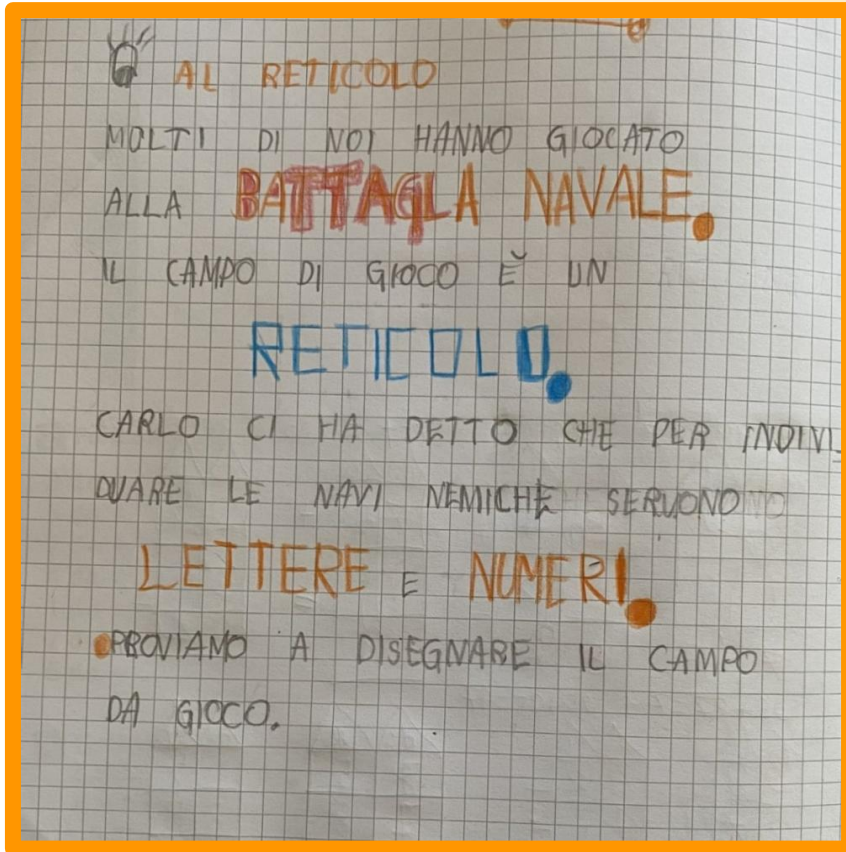 AL RETICOLO
MOLTI DI NOI HANNO GIOCATO
ALLA BATTAGLA NAVALE.
IL CAMPO DI GIOCO È UN
RETICOLO.
CARLO CI HA DETTO CHE PER INDIVI_
DUARE LE NAVI NEMICHE SERVONO
LETTERE E NUMERI.
PROVIAMO A DISEGNARE IL CAMPO
DA GIOCO.